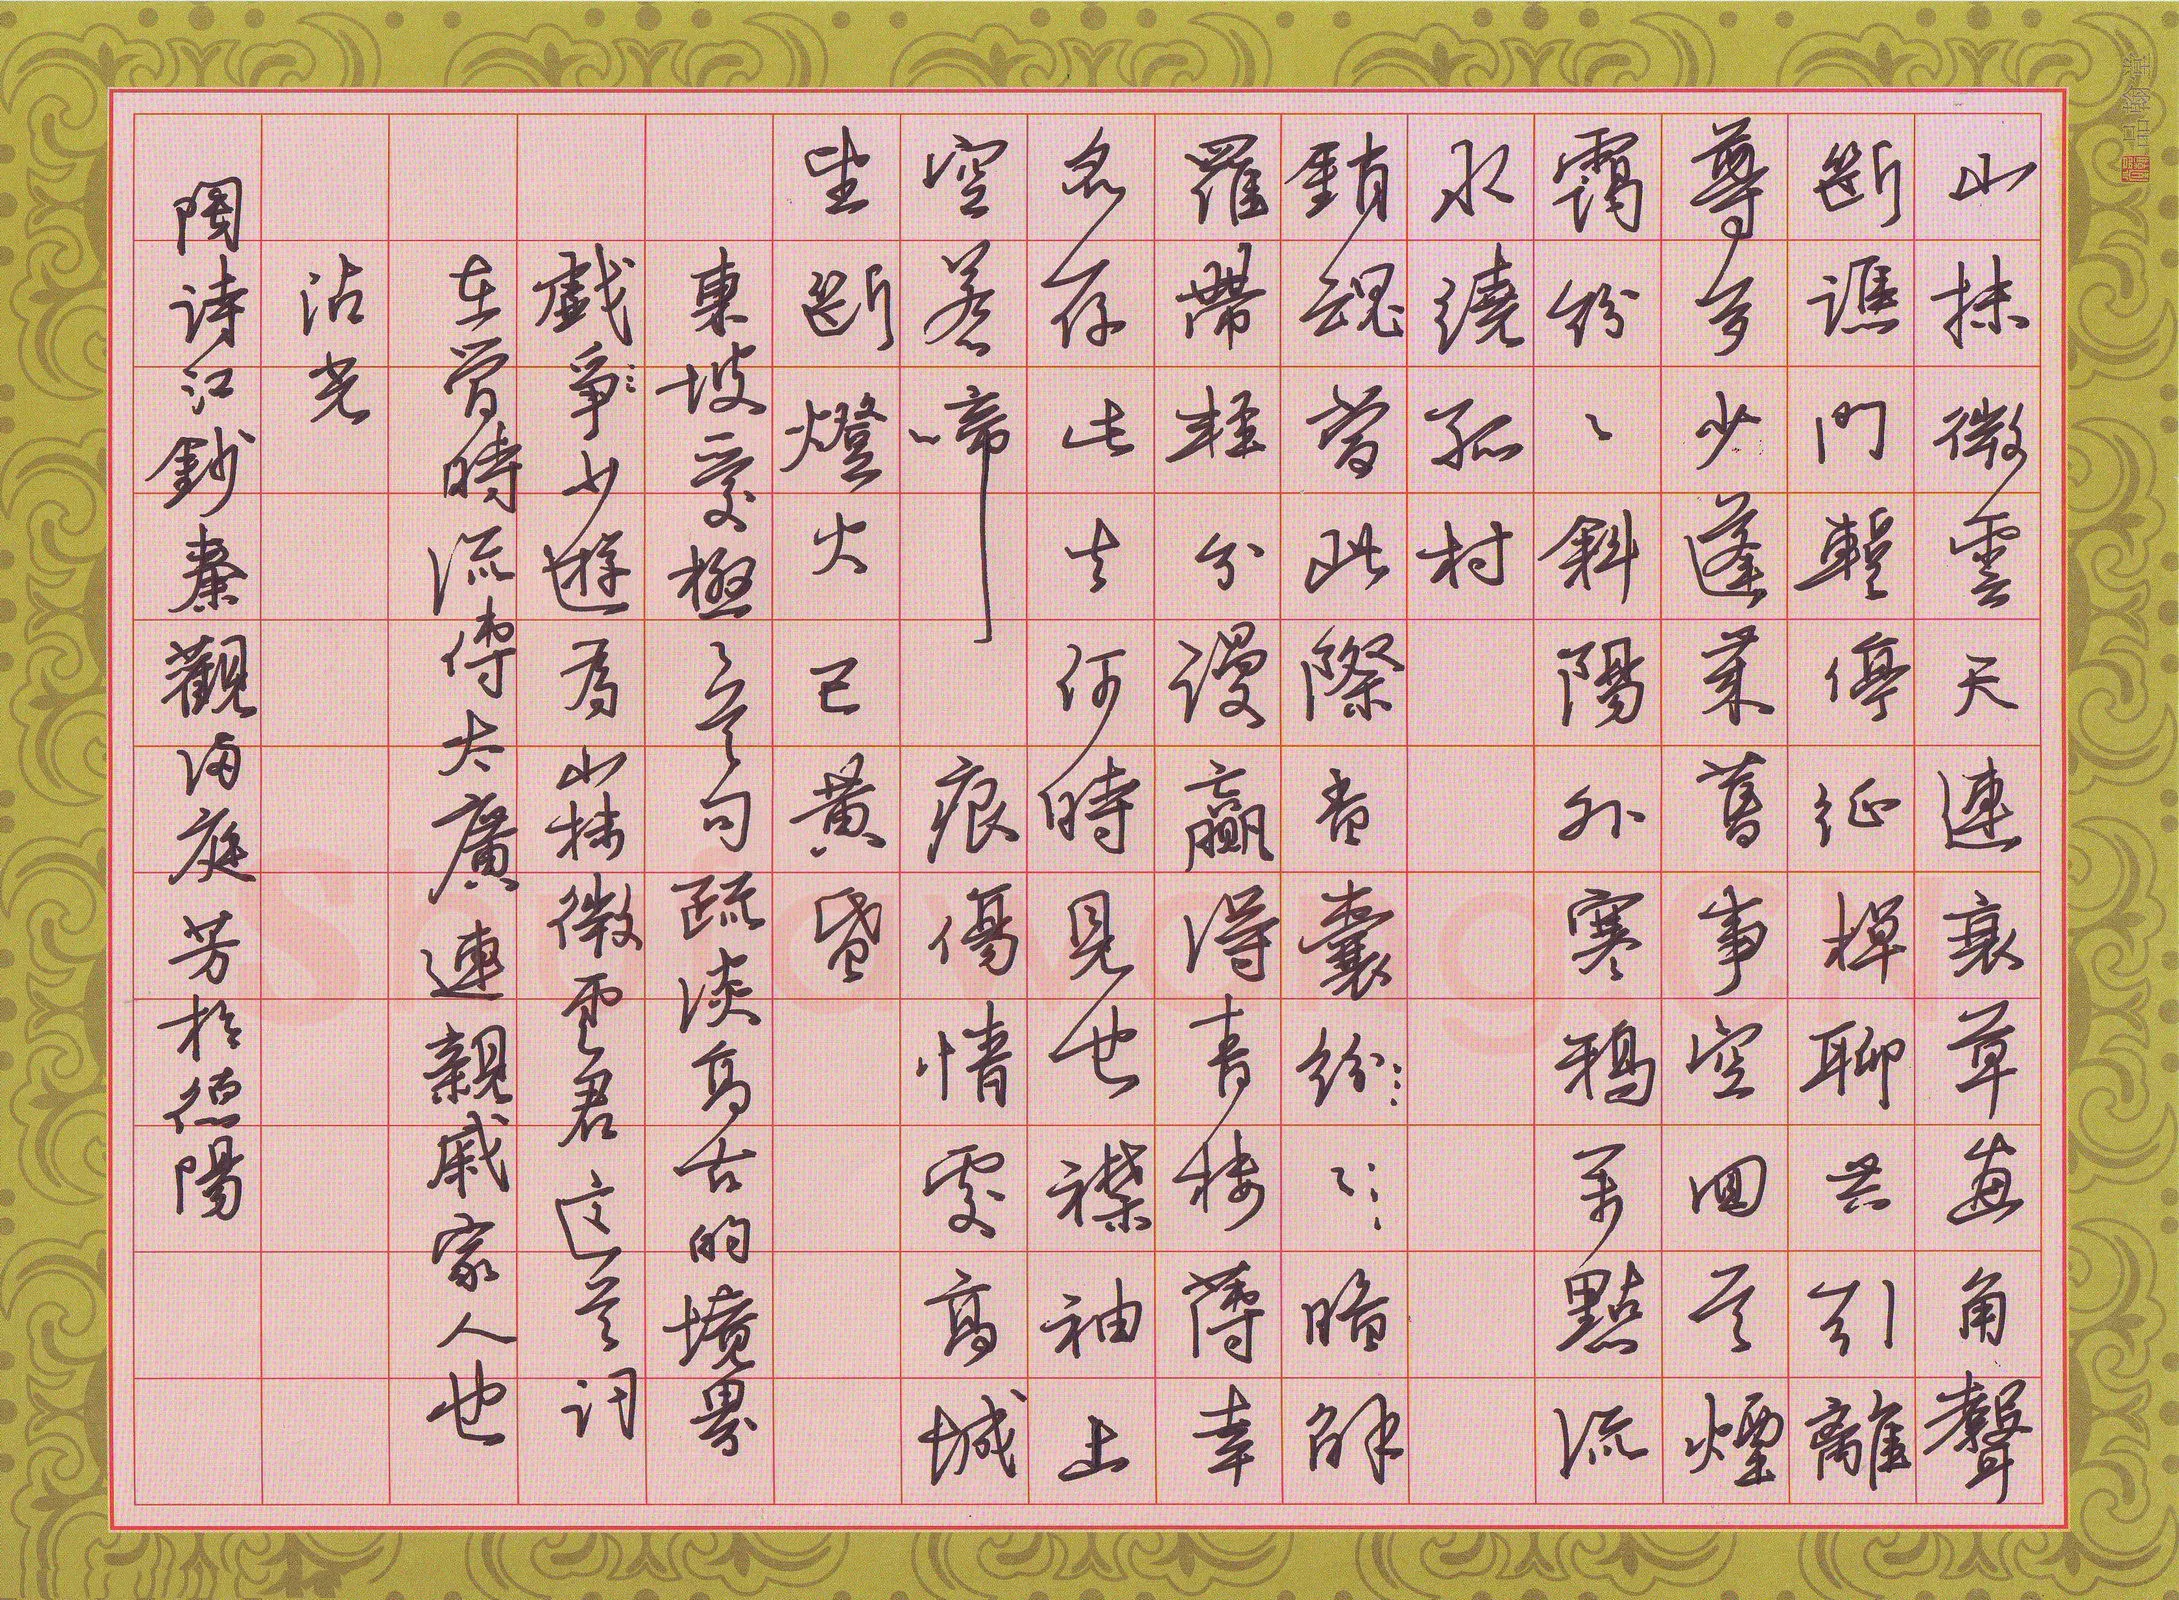 山抹微雲天連衰草畫角聲
斷譙門暫停征棹聊共引離
尊多少蓬萊舊事空回首煙
靄紛々斜陽外寒鴉萬點流
水繞孤村
銷魂當此際香囊紛々暗解
羅帶輕分謾贏得青樓薄幸
名存此去何時見也襟袖上
空惹啼痕傷情處高城
望斷燈火已黃昏
東坡愛極々首句疏淡高古的境界
戲爭少遊為山抹微雲君这首词
在當時流傳太廣連親戚家人也
沾光
陶诗江鈔秦觀滿庭芳於德陽
ShufawangCN